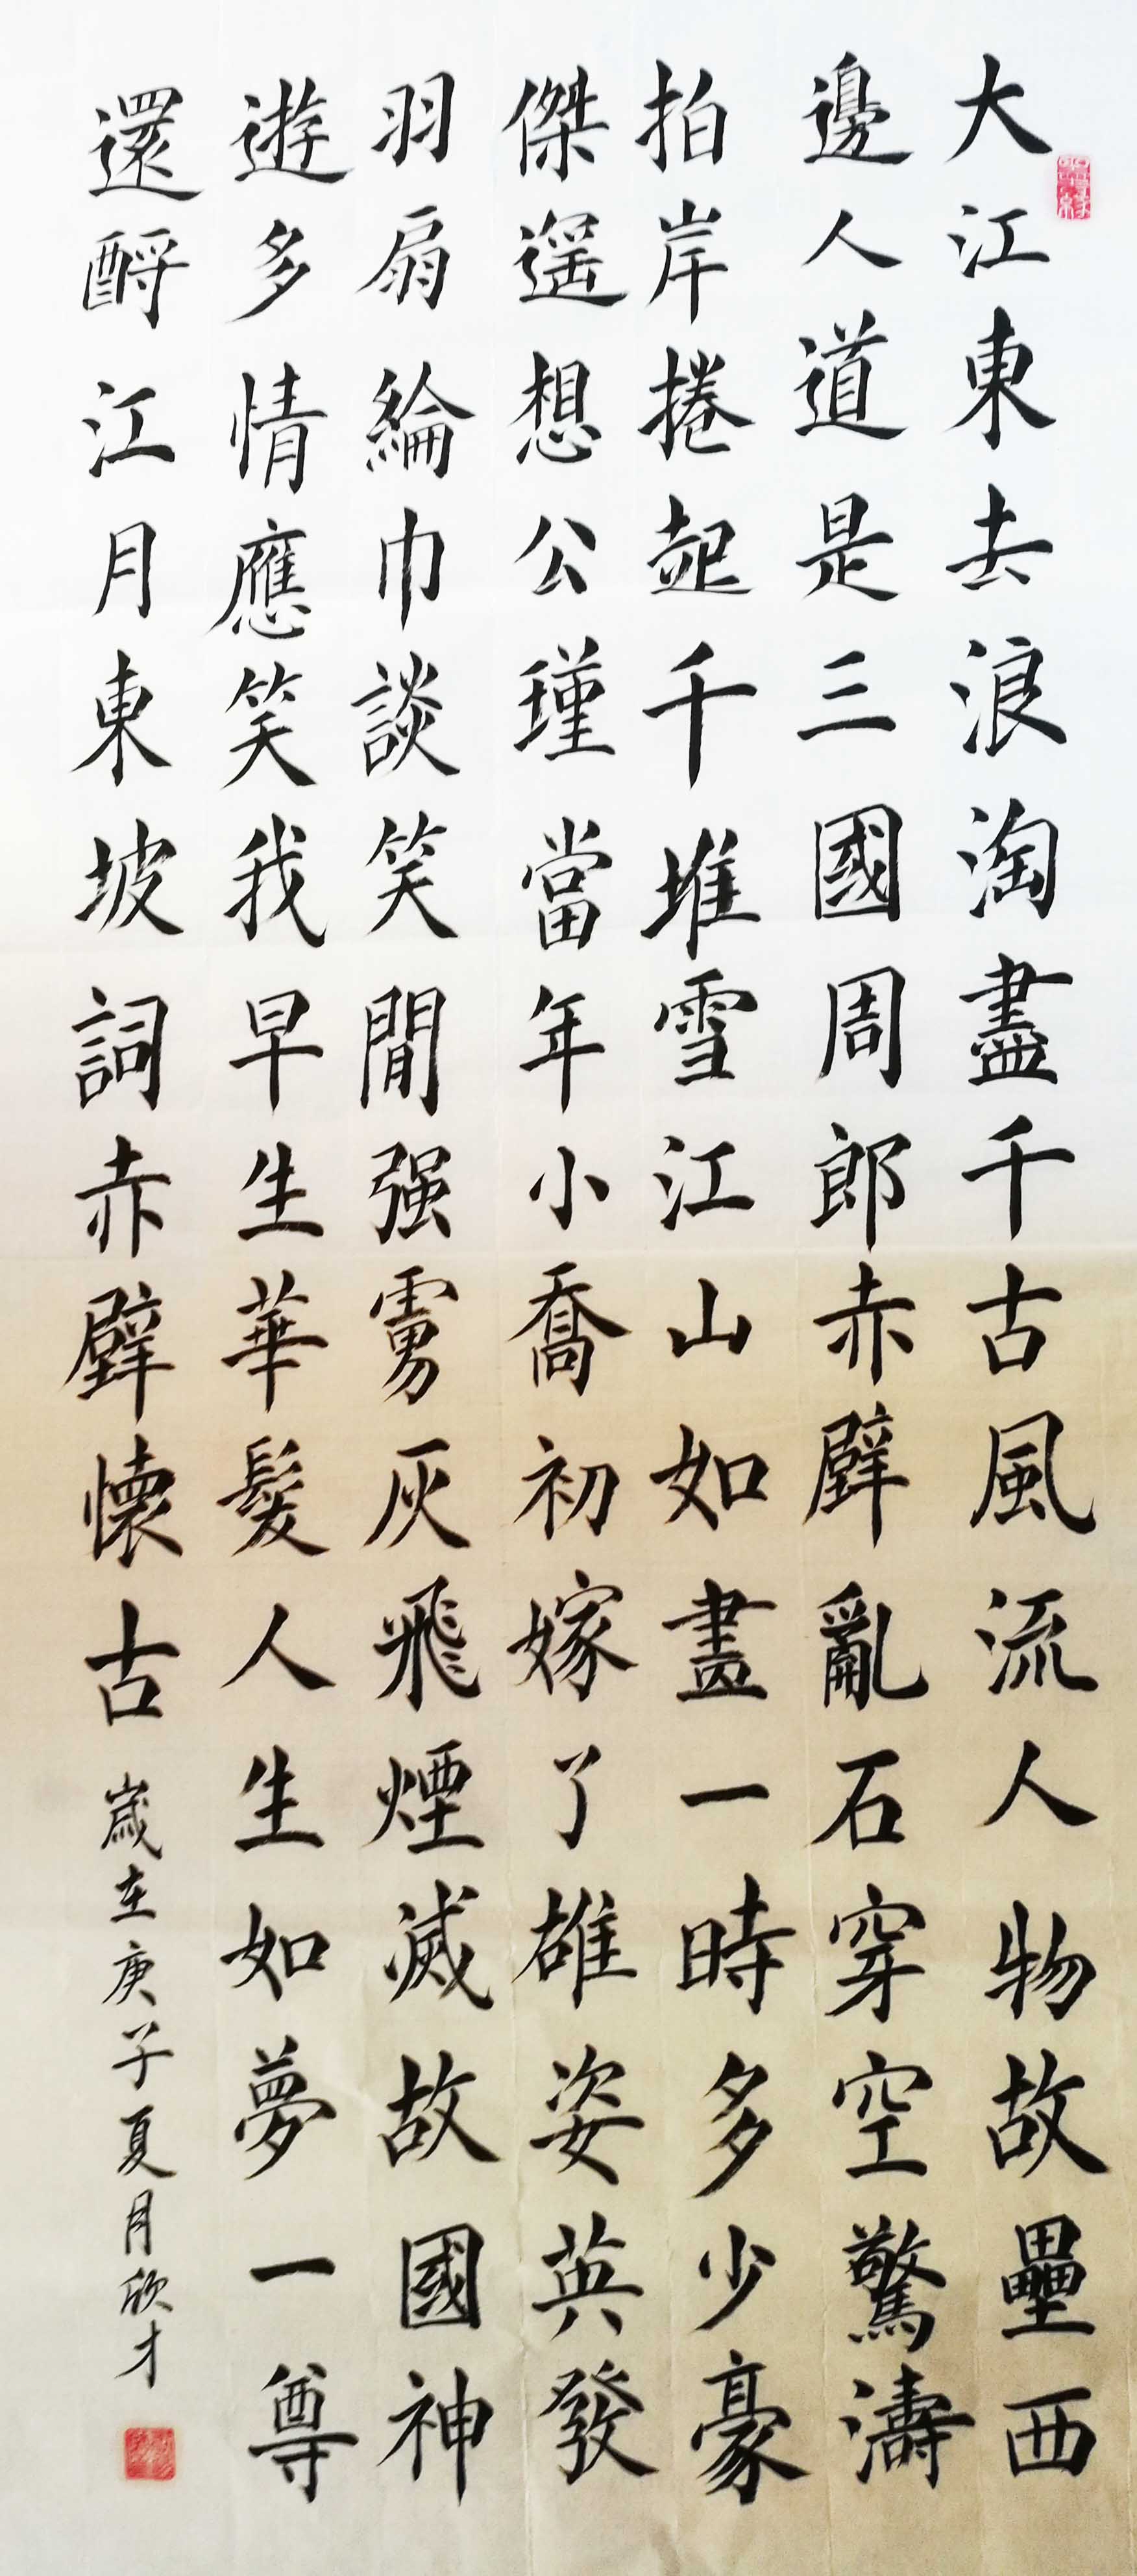 大江東去浪淘盡千古風流人物故壘西
邊人道是三國周郎赤壁亂石穿空驚濤
拍岸捲起千堆雪江山如畫一時多少豪
傑遥想公瑾當年小喬初嫁了雄姿英發
羽扇綸巾談笑間强虜灰飛煙滅故國神
遊多情應笑我早生華髮人生如夢一尊
還酹江月東坡詞赤壁懷古
歲在庚子夏月欣才